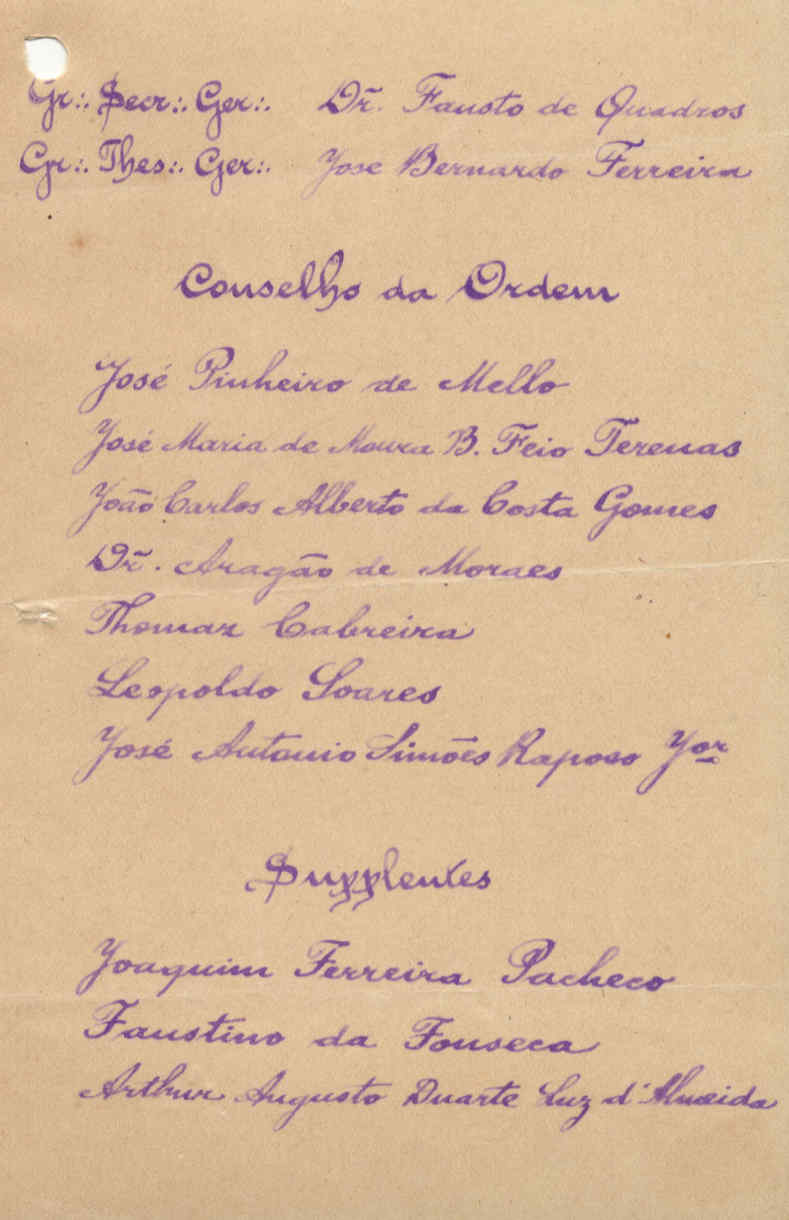 Gr∴ Secr∴ Ger∴ Dr. Fausto de Quadros
Gr∴ Thes∴ Ger∴ Jose Bernardo Ferreira
Conselho da Ordem
José Pinheiro de Mello
José Maria de Moura B. Feio Terenas
João Carlos Alberto da Costa Gomes
Dr. Aragão de Moraes
Thomaz Cabreira
Leopoldo Soares
José Antonio Simões Raposo Jor
Supplentes
Joaquim Ferreira Pacheco
Faustino da Fonseca
Arthur Augusto Duarte Luz d'Almeida